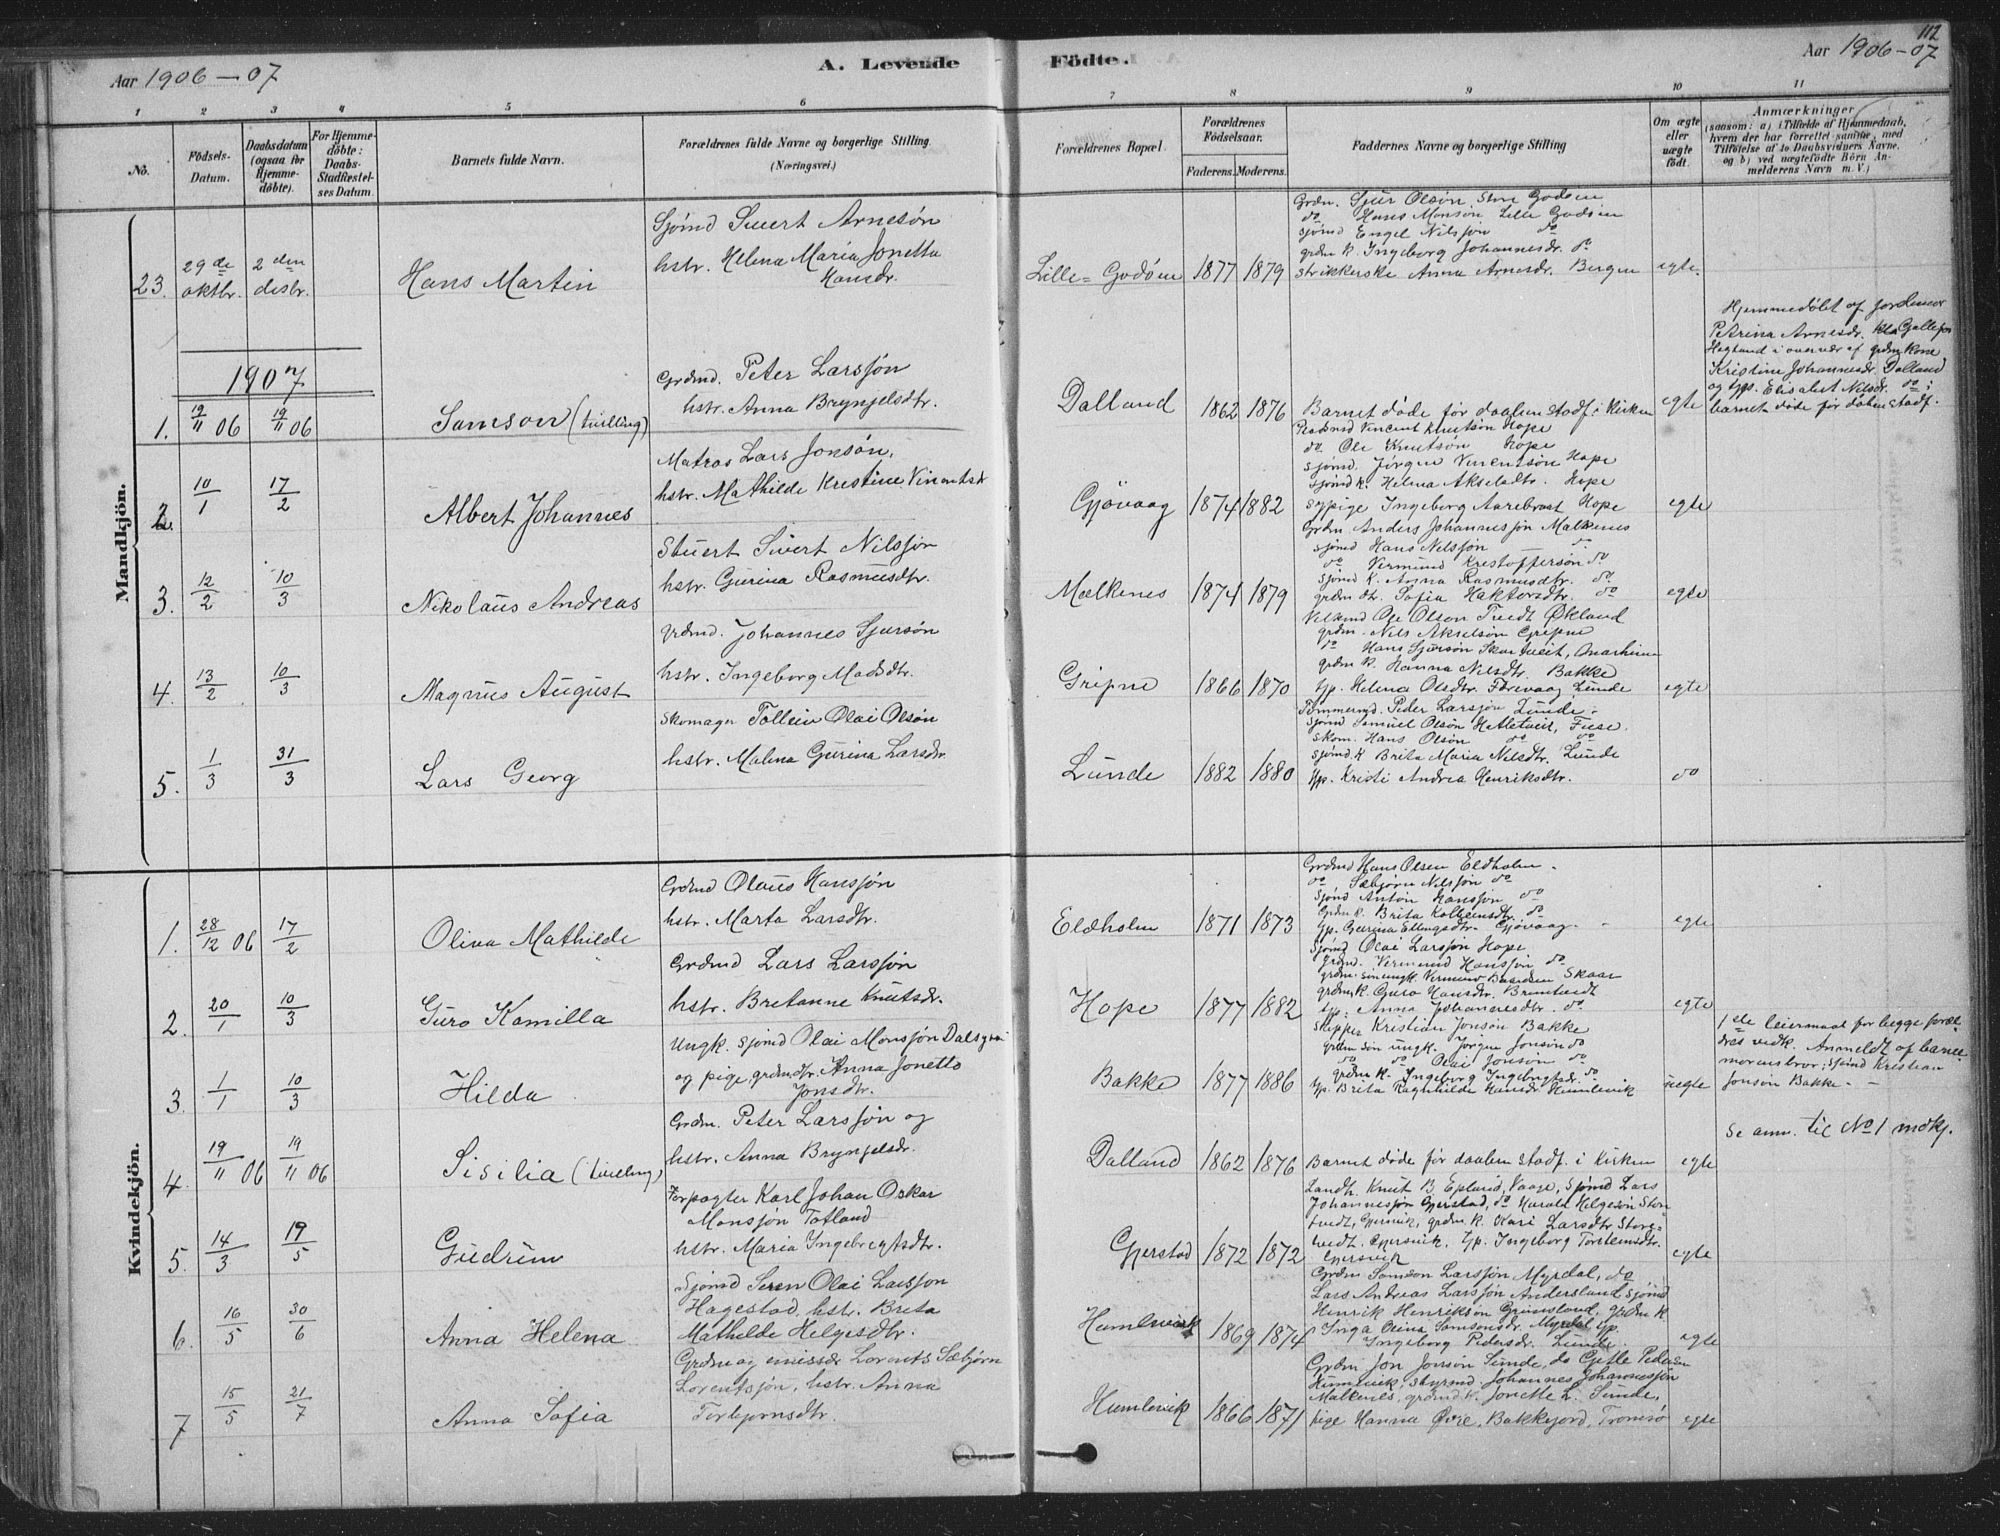 112
Aar 1906 — 07
A. Levende
Födte.
Aar 1906 – 07
1 2 3 4 5 6 7 8 9 10 11
No.
Födsels-
Datum.
Daabsdatum
(ogsaa for
Hjemme-
döbte).
For Hjemme-
döbte:
Daabs-
Stadfæstel-
ses Datum.
Barnets fulde Navn.
Forældrenes fulde Navne og borgerlige Stilling
(Næringsvei.)
Forældrenes Bopæl.
Forældrenes
Födselsaar.
Faderens. Moderens.
Faddernes Navne og borgerlige Stilling
Om ægte
eller
uægte
født.
Anmærkninger
(saasom: a) i Tilfælde af Hjemmedaab,
hvem der har forrettet samme, med
Tilföielse af to Daabsvidners Navne,
og b) ved uægtefödte Börn An-
melderens Navn m. V.)
Mandkjön.
23. 29de oktbr. 2den desbr.
Hans Martin
Sjømd Sivert Arnesøn
hstr. Helena Maria Jonetta
Hansdr.
Lille-Godøen 1877 1879
Grdm. Sjur Olsøn Store Godøen
do Hans Monsøn Lille Godøen
sjømd Engel Nilssøn do
grdm k. Ingeborg Johannesdr. do
strikkerske Anna Arnesdr. Bergen
egte.
1907
1. 19/11 06 19/11 06
Samson (tvilling)
Grdmd. Peter Larssøn
hstr. Anna Brynjelsdtr.
Dalland 1862 1876
Barnet døde før daaben stadf. i Kirken
egte
Hjemmedøbt af jordemor
Petrina Arnesdr.
Hagland i overvær af grdm. kone
Kristine Johannesdr. Dalland
og tjp. Elisabet Nilsdr. do;
barnet døde før daben stadf.
2. 10/1 17/2
Albert Johannes
Matros Lars Jonsøn,
hstr. Mathilde Kristine Vinentsdr
Gjøvaag 1874 1882
Vincent Knutsøn Hope
do. Ole Knutsøn Hope
sjømd. Jørgen Vincentsøn Hope
sjømd k. Helena Akseldtr. Hope
sypige Ingeborg Aarebrot Hope
egte
3. 12/2 10/3
Nikolaus Andreas
Stuert Sivert Nilssøn
hstr. Gurina Rasmusdtr.
Mælkenes 1874 1879
Grdm Anders Johannessøn Malkenes
sjømd Hans Nilssøn do
do Vermund Kristoffersøn do
sjømd k. Anna Rasmusdtr. do
grdm dtr. Sofia Haktorsdtr. do
egte
4. 13/2 10/3
Magnus August
grdmd. Johannes Sjursøn
hstr. Ingeborg Madsdtr.
Gripne 1866 1870
Ole Olsøn Tvedt Økland
grdm. Nils Akselsøn Gripne
do Hans Sjursøn Skartveit,
grdm k. Hanna Nilsdtr. Bakke
tjp. Helena Olsdtr. Førevaag Lunde
egte
5. 1/3 31/3
Lars Georg
Skomager Tollein Olai Olsøn
hstr. Malena Gurina Larsdtr
Lunde 1882 1880
Tømmermd. Peder Larssøn Lunde.
sjømd Samuel Olsøn Hatletveit, Fuse.
skom. Hans Olsøn do do
sjømd k Brita Maria Nilsdtr. Lunde
tjp. Kristi Andrea Henriksdtr.
do
Kvindekjön.
1. 28/12 06 17/2
Oliva Mathilde
Grdmd Olaus Hanssøn
hstr. Marta Larsdtr.
Eldholm 1871 1873
Grdmd Hans Olsen Eldholm.
do Sæbjørn Nilssøn do
Sjømd Anton Hanssøn do
Grdm k. Brita Kolbeinsdtr. do
tjp. Gurina Ellingsdtr. Gjøvaag.
egte
2. 20/1 10/3
Guro Kamilla
Grdmd Lars Larssøn
hstr. Bretanne Knutsdr.
Hope 1877 1882
Sjømd Olai Larssøn Hope
Grdm. Vermund Hanssøn do
grdm. søn ungk. Vermund Skaar
grdm k. Guro Hansdtr. Brimtvedt
tjp. Anna Johannesdtr. do
egte
3. 1/1 10/3
Hilda
Ungk. sjømd Olai Monssøn
og pige, grdmdtr. Anna Jonetta
Jonsdtr.
Bakke 1877 1886
Skipper Kristian Jonsøn Bakke
grdm søn ungk. Jørgen Jonsøn do
do do Olai Jonsøn do
grdm k. Ingeborg Ingebrigtsdr. do
tp. Brita Raghnilde Hansdr Humlevik
uegte
1ste leiermaal for begge foræl
dres vedk. Anmeldt af barne
morens bror; sjømd Kristian
Jonsøn Bakke. —
4. 19/11 06 19/11 06
Sisilia (tvilling)
Grdm. Peter Larssøn og
hstr. Anna Brynjelsdr.
Dalland 1862 1876
Barnet døde før daaben stadf. i Kirken
egte
Se anm. til No 1 mdkj.
5. 14/3 19/5
Gudrun
Forpagter Karl Johan Oskar
Monssøn Totland
hstr. Maria Ingebregtsdtr.
Gjerstad 1872 1872
Landh. Knut B. Epland, Vaage, Sjømd Lars
Johannessøn Gjerstad, do Harald Helgesøn Stor
tvedt, Gjersvik, grdm. k. Kari Larsdtr Store-
tvedt, Gjersvik, tjp. Ingeborg Torsteinsdtr.
Gjersvik
egte
6. 16/5 30/6
Anna Helena
Sjømd Seren Olai Larsson
Hagestad, hstr. Brita
Mathilde Helgesdtr.
Humlevik 1869 1874
Grdm Samson Larssøn Myrdal, do
Lars Andreas Larssøn Andersland, sjømd
Henrik Henriksøn Grimsland, grdm k
Inga Olina Samsonsdr. Myrdal tjp.
Ingeborg Pedersdr. Lunde
egte
7 15/5 21/7
Anna Sofia
Grdm og emissær Lorents Sæbjørn
Lorentssøn, hstr. Anna
Torbjørnsdtr.
Humlevik 1866 1871
Grdm Jon Jonsøn Sunde, do Gjetle Pedersen
Humlevik, styrmd. Johannes Johannessøn
Malkenes, grdmd k. Jonette L. Sunde,
pige Hanna Øvre, Bakkejord, Tromsø
egte